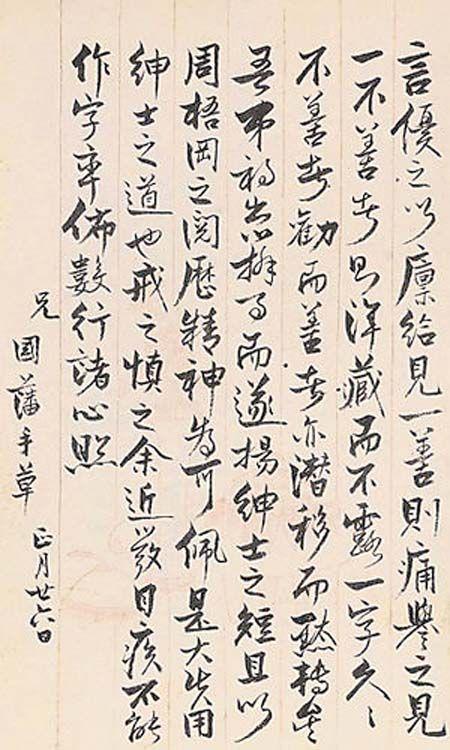 言優之以廩給見一善則痛譽之見
一不善者則渾藏而不露一字久〻
不善者勸而善者亦潜移而默轉矣
吾弟初出辦事而遂揚紳士之短且以
周梧岡之閱歷精神為可佩是大失用
紳士之道也戒之慎之余近發目疾不能
作字率佈數行諸心照
兄國藩手草 正月廿六日